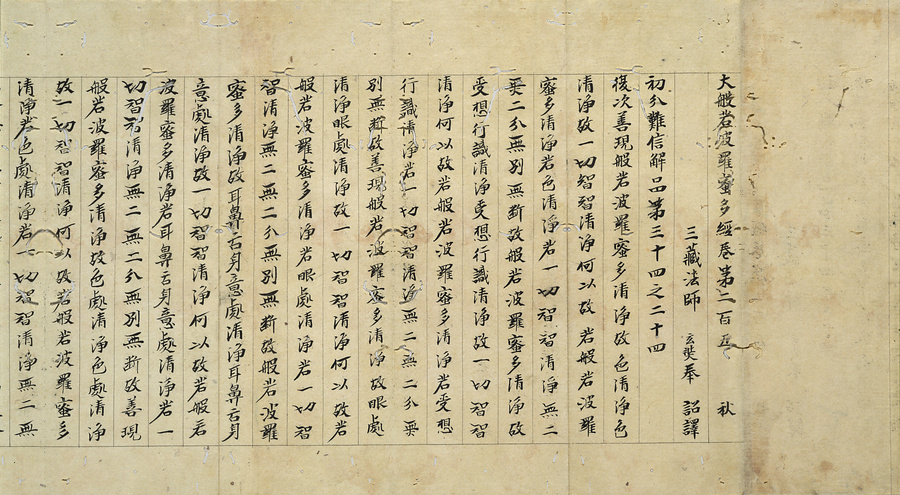 大般若波羅蜜多經卷第二百五 秋
三藏法師 玄奘奉 詔譯
初分難信解品第三十四之二十四
復次善現般若波羅蜜多清淨故色清淨色
清淨故一切智智清淨何以故若般若波羅
蜜多清淨若色清淨若一切智智清淨無二
無二分無別無斷故般若波羅蜜多清淨故
受想行識清淨受想行識清淨故一切智智
清淨何以故若般若波羅蜜多清淨若受想
行識清淨若一切智智清淨無二無二分無
別無斷故善現般若波羅蜜多清淨故眼處
清淨眼處清淨故一切智智清淨何以故若
般若波羅蜜多清淨若眼處清淨若一切智
智清淨無二無二分無別無斷故般若波羅
蜜多清淨故耳鼻舌身意處清淨耳鼻舌身
意處清淨故一切智智清淨何以故若般若
波羅蜜多清淨若耳鼻舌身意處清淨若一
切智智清淨無二無二分無別無斷故善現
般若波羅蜜多清淨故色處清淨色處清淨
故一切智智清淨何以故若般若波羅蜜多
清淨若色處清淨若一切智智清淨無二無